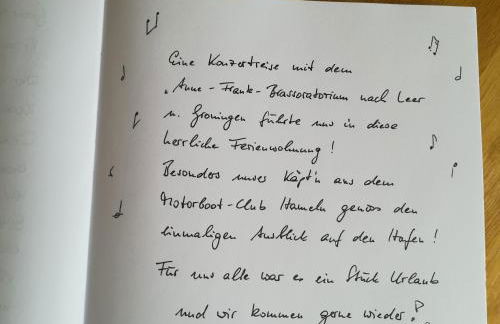 Eine Konzertreise mit dem
"Anne-Frank-Brassoratorium nach Leer
u. Groningen führte uns in diese
herrliche Ferienwohnung!
Besonders unser Käpt'n aus dem
Motorboot-Club Hameln genoss den
einmaligen Ausblick auf den Hafen!
Für uns alle war es ein Stück Urlaub
und wir kommen gerne wieder!